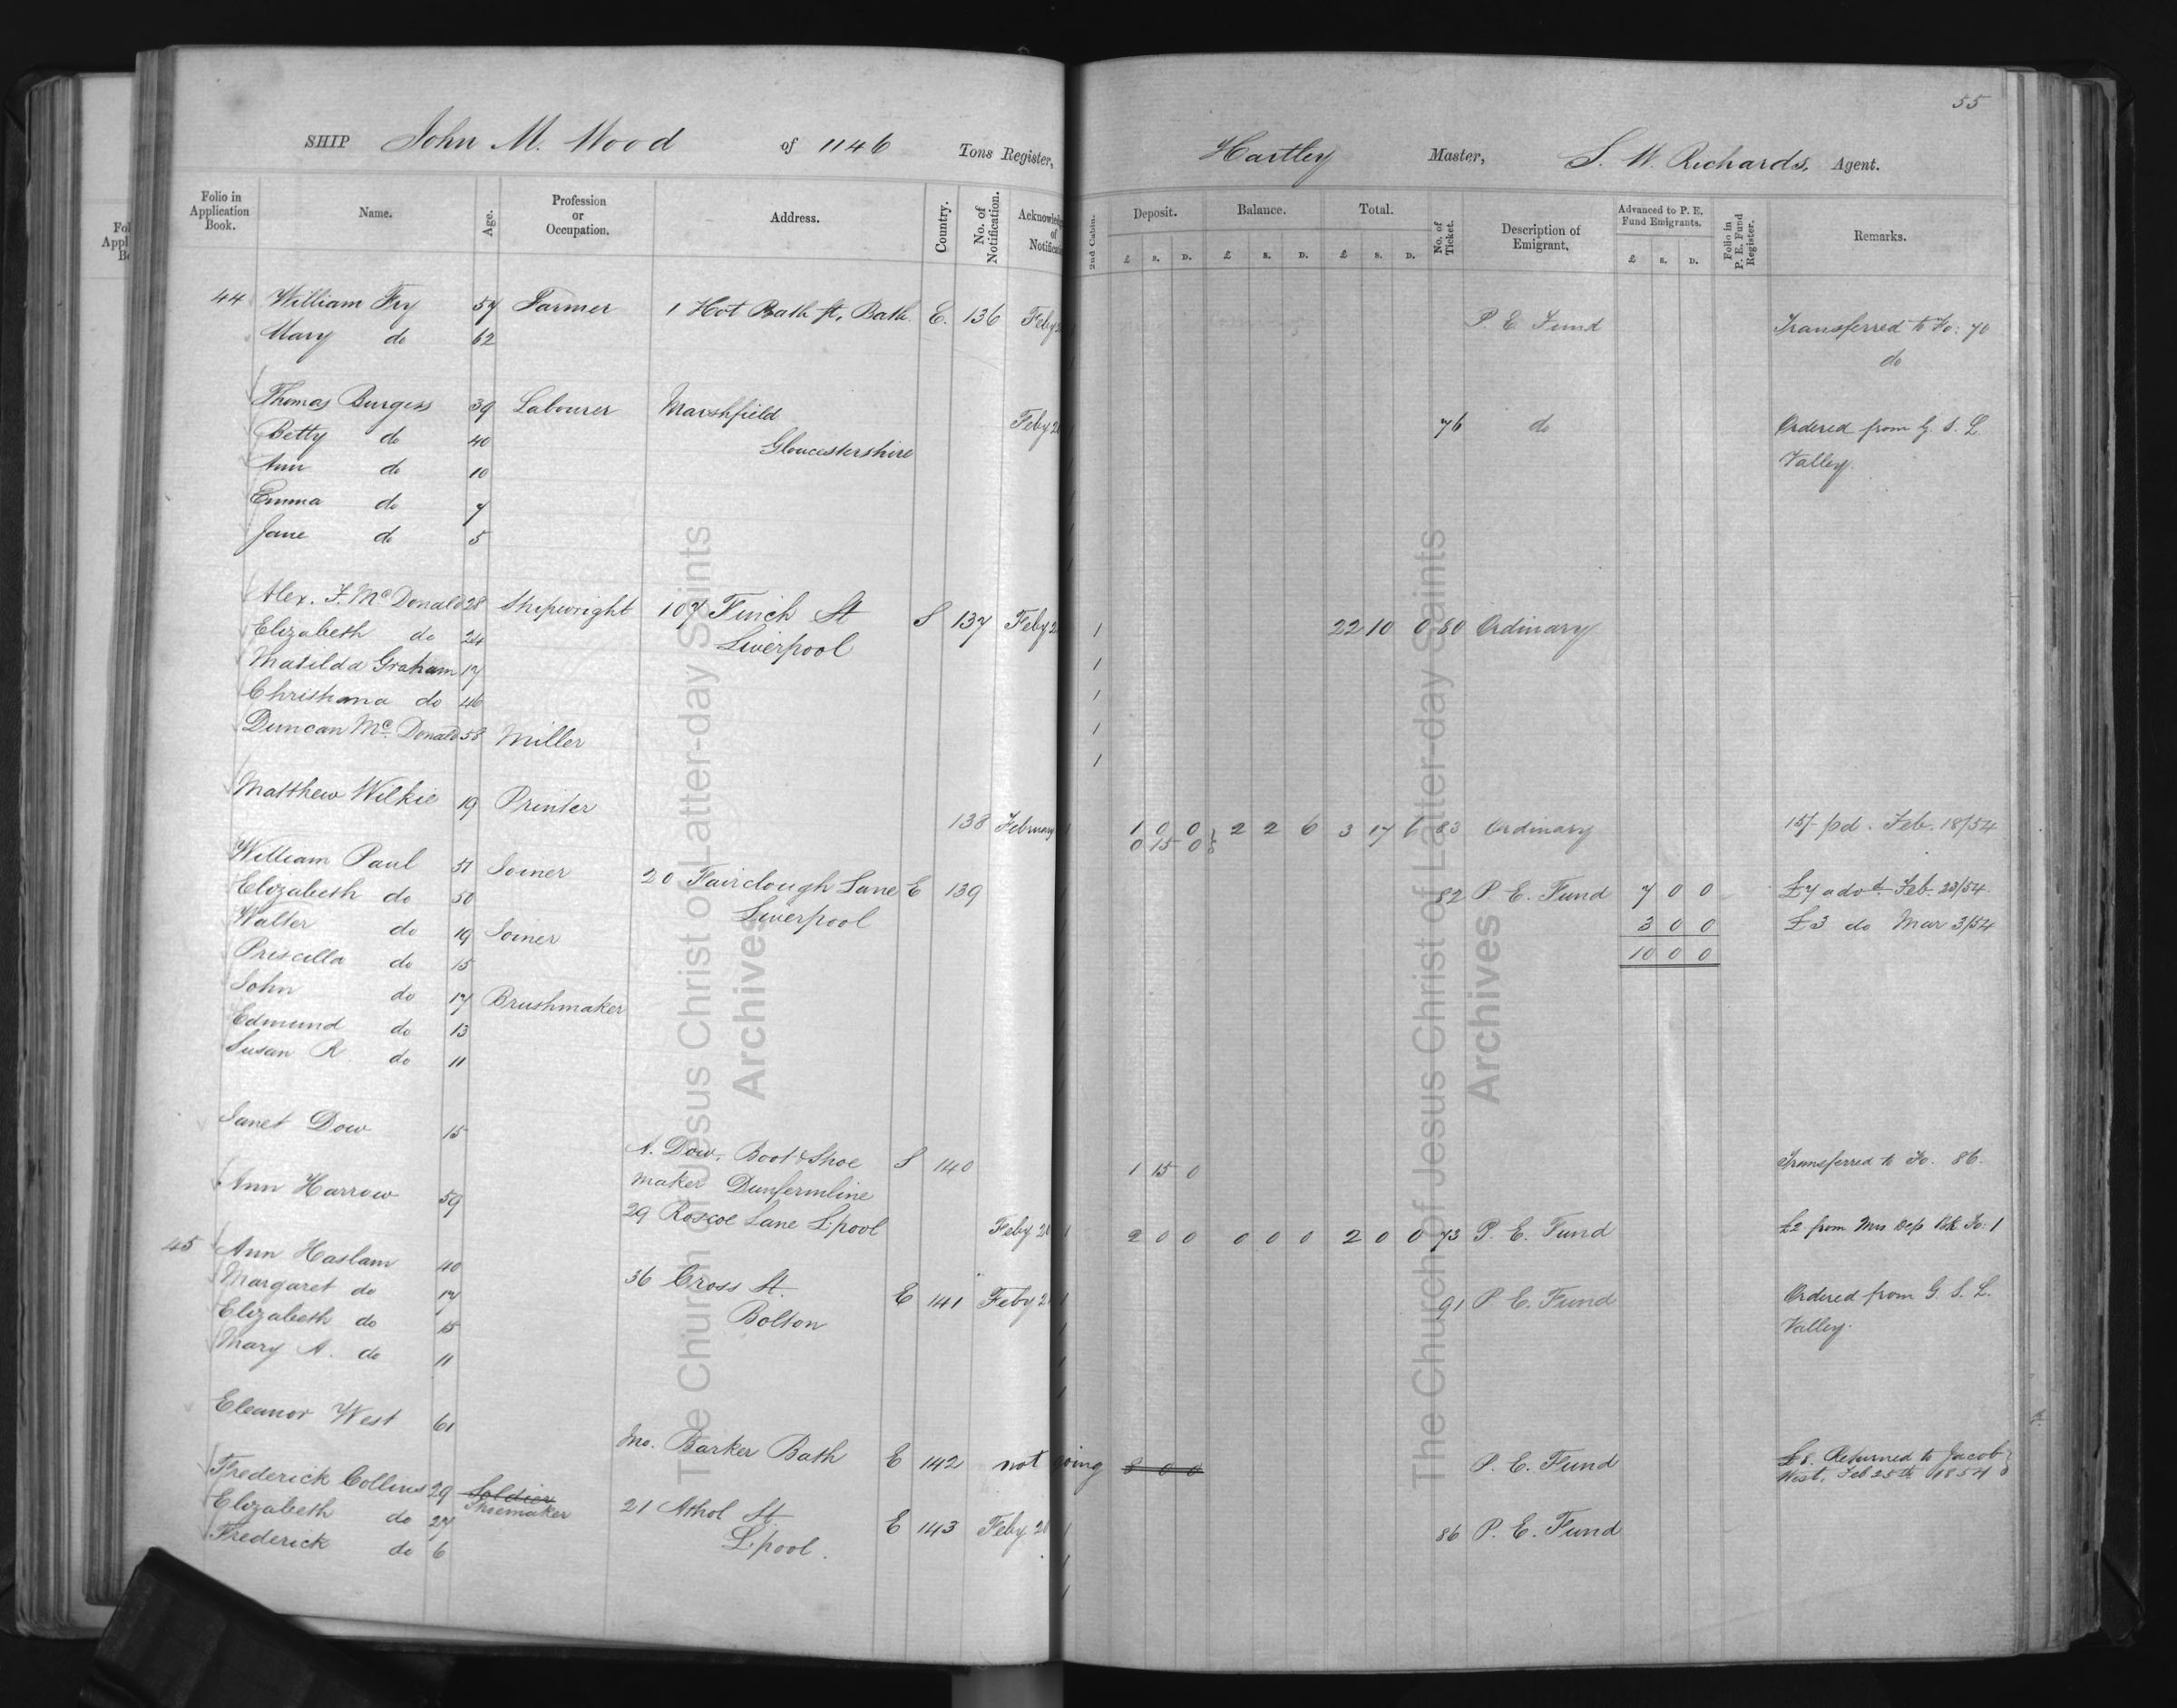 55
SHIP John M. Wood of 1146 Tons Register, Hartley Master, S. W. Richards, Agent.
Folio in Application Book. Name. Age. Profession or Occupation. Address. Country. No. of Notification. 2nd Cabin. Deposit. Balance. Total. No. of Ticket. Description of Emigrant. Advanced to P. E. Fund Emigrants. Folio in P. E. Fund Register. Remarks.
£ S. D. £ S. D. £ S. D. £ S. D.
44 William Fry 57 Farmer 1 Hot Bath St, Bath. E. 136 Feby P. E. Fund Transferred to Fo: 70
Mary do 62 do
Thomas Burgess 39 Labourer Marshfield Feby 2 76 do Ordered from G. S. L.
Betty do 40 Gloucestershire Valley.
Ann do 10
Emma do 7
Jane do 5
Alex. F. Mc Donald 28 Shipwright 107 Finch St S 137 Feby 2 1 22 10 0 80 Ordinary
Elizabeth do 24 Liverpool 1
Matilda Graham 17 1
Christiana do 46 1
Duncan Mc Donald 58 Miller 1
Matthew Wilkie 19 Printer 138 February 1 0 0 2 2 6 3 17 6 83 Ordinary 15/- pd. Feb. 18/54
0 15 0
William Paul 51 Joiner 20 Fairclough Lane E 139 82 P. E. Fund 7 0 0 £7 advd. Feb 23/54
Elizabeth do 50 Liverpool
Walter do 19 Joiner 3 0 0 £3 do Mar 3/54
Priscilla do 15 10 0 0
John do 17 Brushmaker
Edmund do 13
Susan R. do 11
Janet Dow 15 A. Dow, Boot & Shoe S 140 1 15 0 Transferred to Fo. 86.
maker Dunfermline
Ann Harrow 59 29 Roscoe Lane L.pool Feby 2 1 2 0 0 0 0 0 2 0 0 73 P. E. Fund £2 from Mrs Dep Bk Fo: 1
45 Ann Haslam 40 36 Cross St. E 141 Feby 2 1 91 P. E. Fund Ordered from G. S. L.
Margaret do 17 Bolton Valley.
Elizabeth do 15
Mary A. do 11
Eleanor West 61 Mo. Barker Bath E 142 not going 8 0 0 P. E. Fund £8. Returned to Jacob
West, Feb 25th 1854
Frederick Collins 29 Soldier 21 Athol St. E 143 Feby 2 86 P. E. Fund
Shoemaker
Elizabeth do 27 L.pool.
Frederick do 6
The Church of Jesus Christ of Latter-day Saints
Archives
The Church of Jesus Christ of Latter-day Saints
Archives